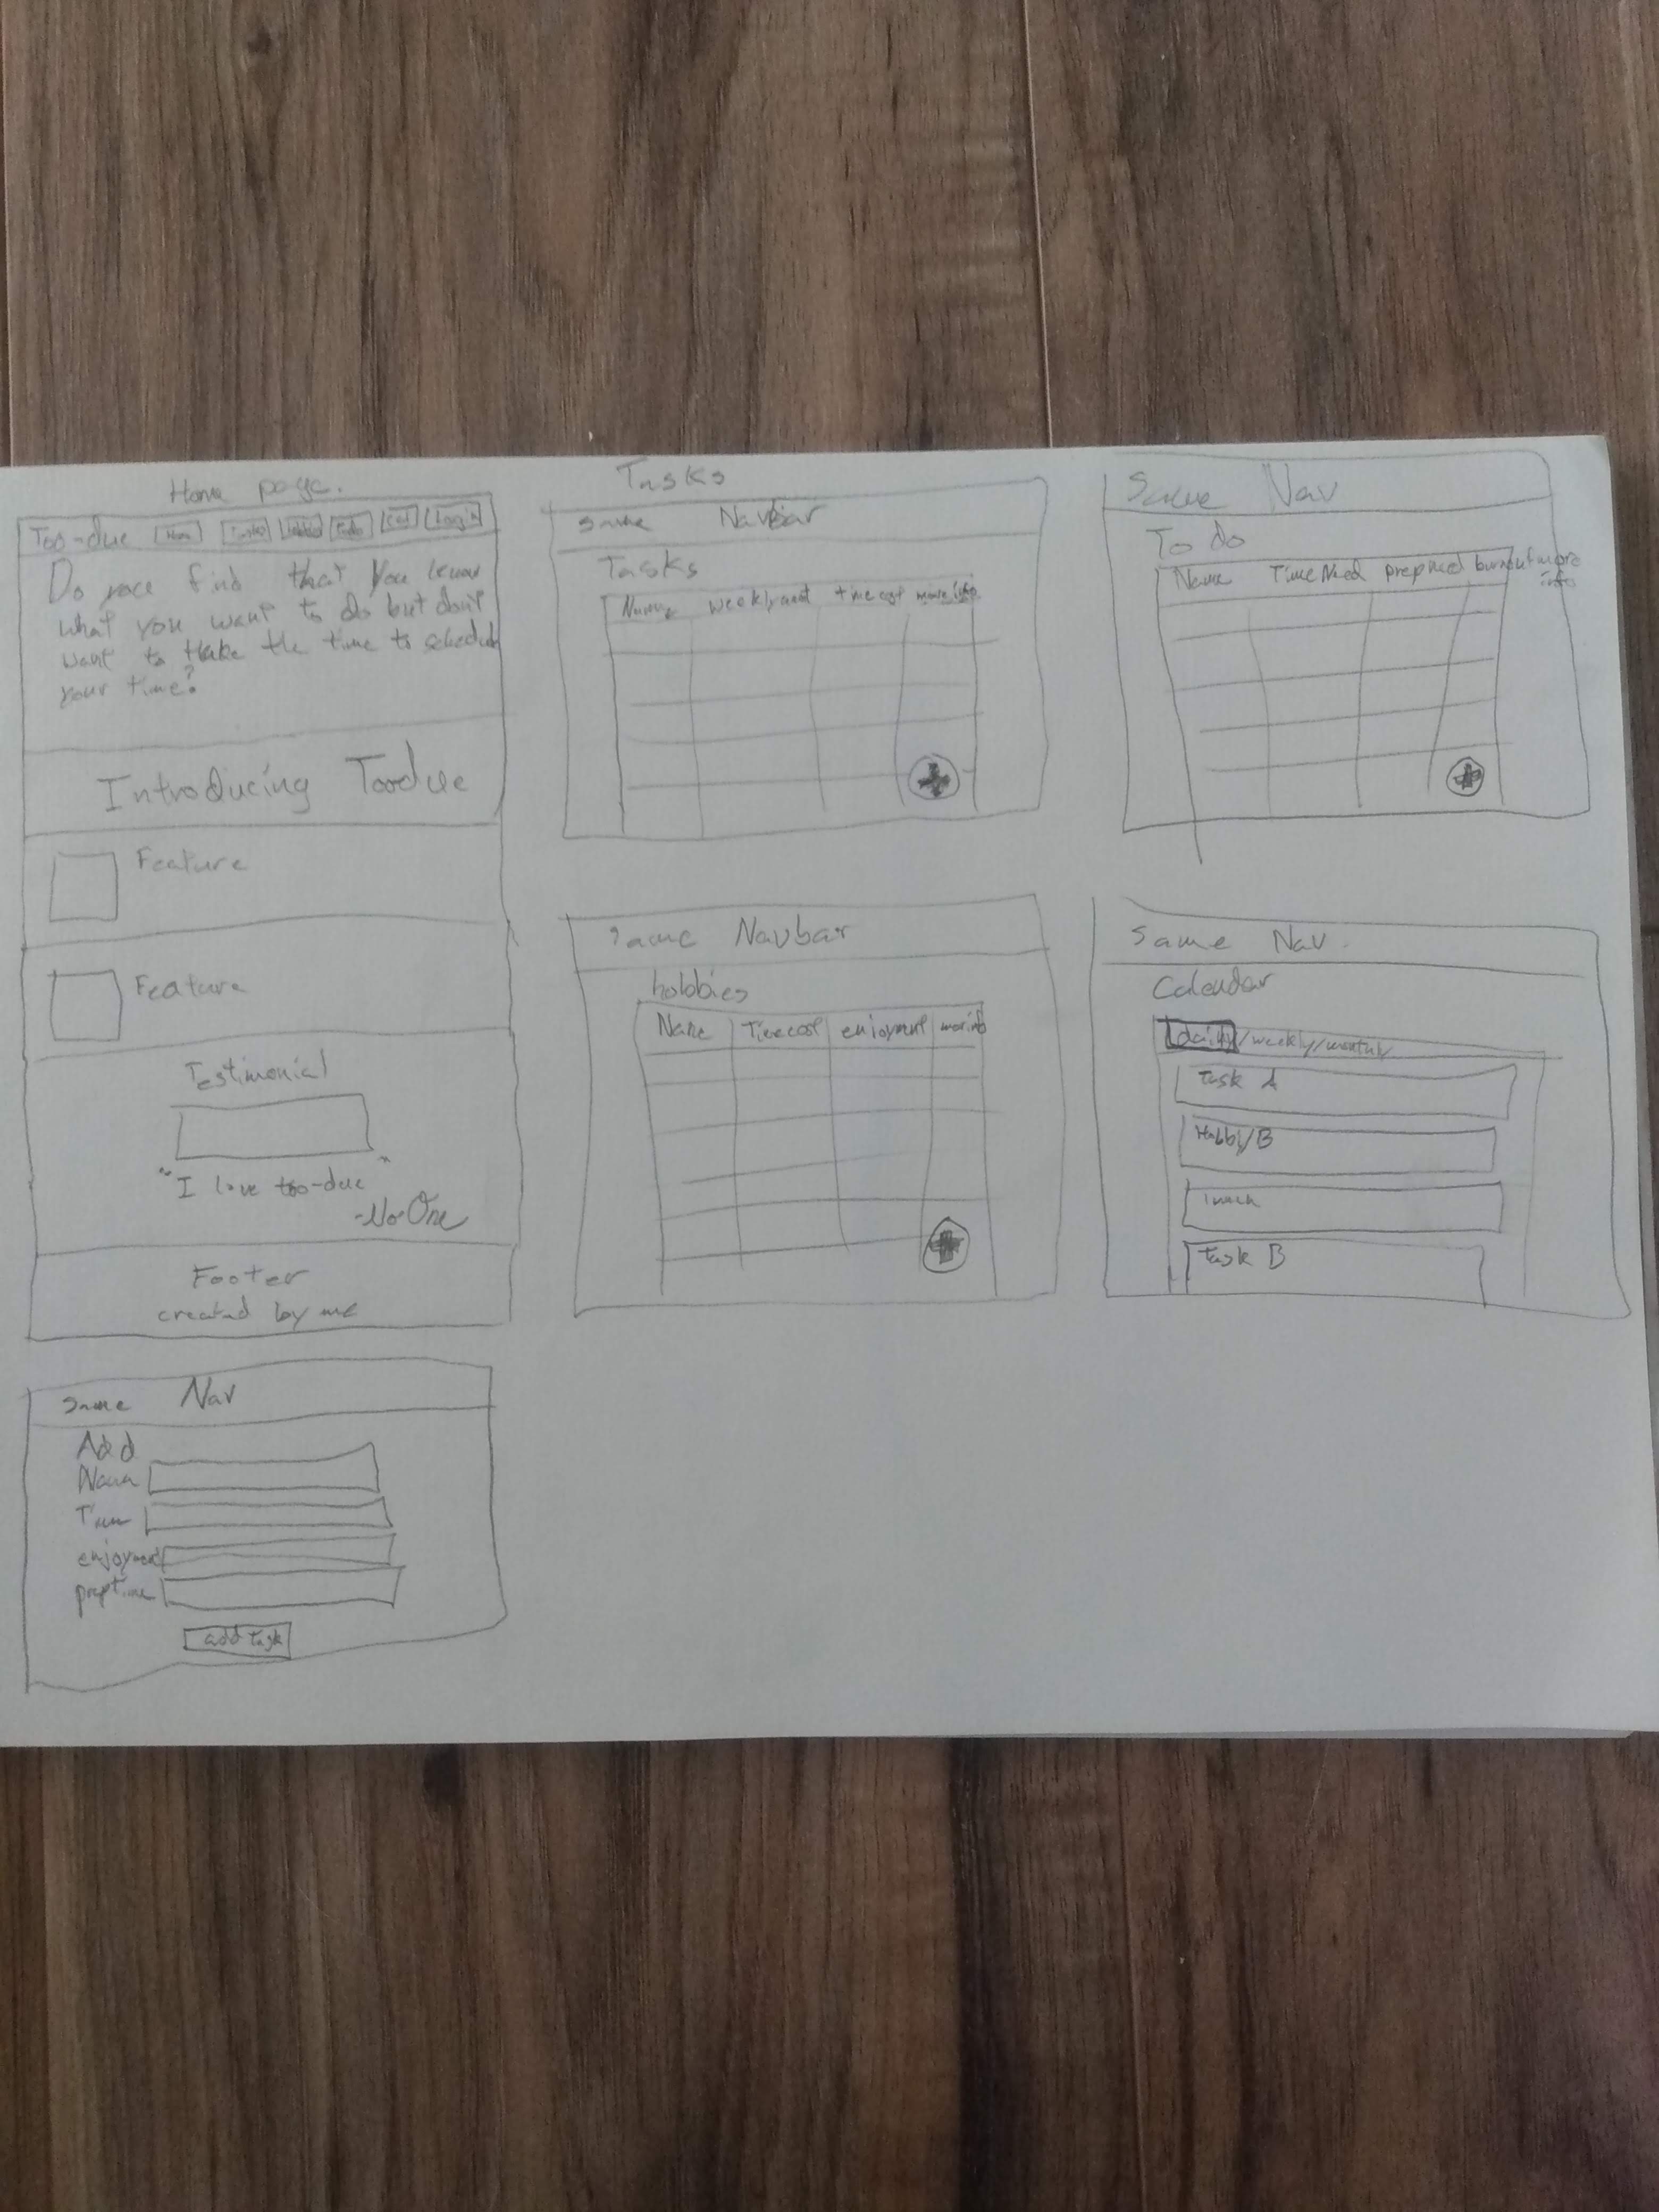 Home page.
Too-due Home Tasks Hobbies Todo Cal Login
Do you find that you know
what you want to do but don't
want to take the time to schedule
your time?
Introducing Toodue
Feature
Feature
Testimonial
"I love too-due"
-No One
Footer
created by me
Same Nav
Add
Name
Time
enjoyment
preptime
add task
Tasks
Same Navbar
Tasks
Name weekly need time cost more info
Same Navbar
hobbies
Name Time cost enjoyment more info
Same Nav
To do
Name Time Need prep need burnout more
info
Same Nav.
Calendar
daily/weekly/monthly
Task A
Hobby B
lunch
Task B